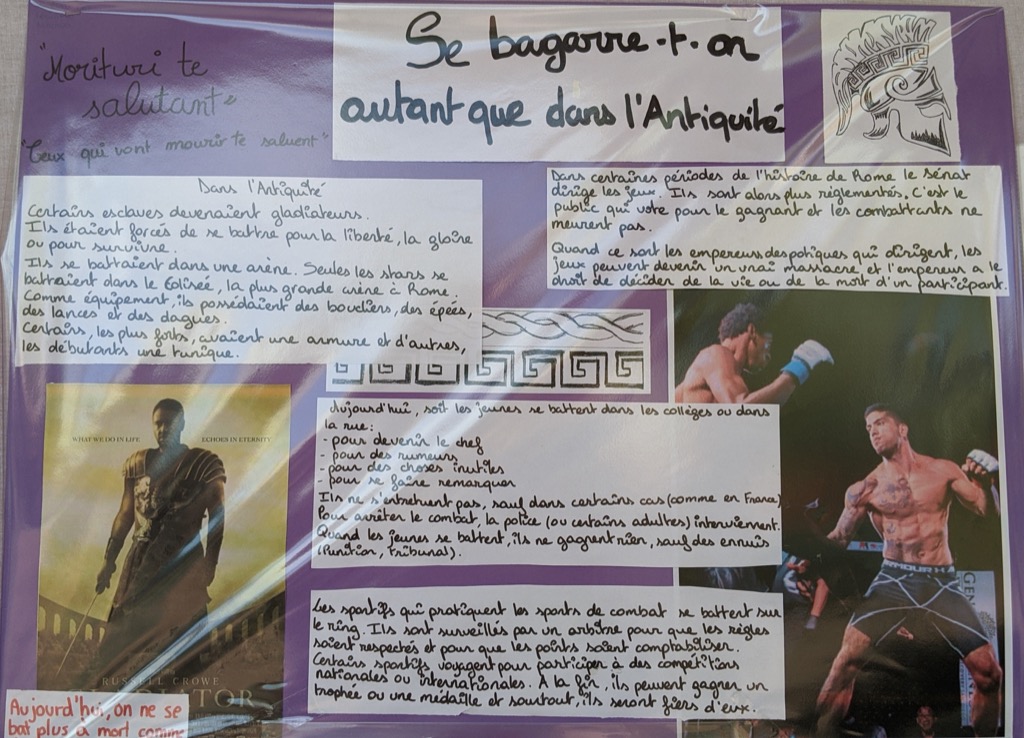 "Morituri te
salutant"
"Ceux qui vont mourir te saluent"
Se bagarre-t-on
autant que dans l'Antiquité
Dans l'Antiquité
Certains esclaves devenaient gladiateurs.
Ils étaient forcés de se battre pour la liberté, la gloire
ou pour survivre.
Ils se battaient dans une arène. Seules les stars se
battraient dans le Colisée, la plus grande arène à Rome.
Comme équipement, ils possédaient des boucliers, des épées,
des lances et des dagues.
Certains, les plus forts, avaient une armure et d'autres,
les débutants une tunique.
Dans certaines périodes de l'histoire de Rome le Sénat
dirige les jeux. Ils sont alors plus règlementés. C'est le
public qui vote pour le gagnant et les combattants ne
meurent pas.
Quand ce sont les empereurs despotiques qui dirigent, les
jeux peuvent devenir un vrai massacre et l'empereur a le
droit de décider de la vie ou de la mort d'un participant.
WHAT WE DO IN LIFE ECHOES IN ETERNITY
RUSSELL CROWE
GLADIATOR
Aujourd'hui, on ne se
bat plus à mort comme
Aujourd'hui, soit les jeunes se battent dans les collèges ou dans
la rue:
- pour devenir le chef
- pour des rumeurs
- pour des choses inutiles
- pour se faire remarquer
Ils ne s'entretuent pas, sauf dans certains cas (comme en France)
Pour arrêter le combat, la police (ou certains adultes) interviennent.
Quand les jeunes se battent, ils ne gagnent rien, sauf des ennuis
(Punition, tribunal).
Les sportifs qui pratiquent les sports de combat se battent sur
le ring. Ils sont surveillés par un arbitre pour que les règles
soient respectés et pour que les points soient comptabiliser.
Certains sportifs voyagent pour participer à des compétitions
nationales ou internationales. A la fin, ils peuvent gagner un
trophée ou une médaille et surtout, ils seront fiers d'eux.
UNDER ARMOUR